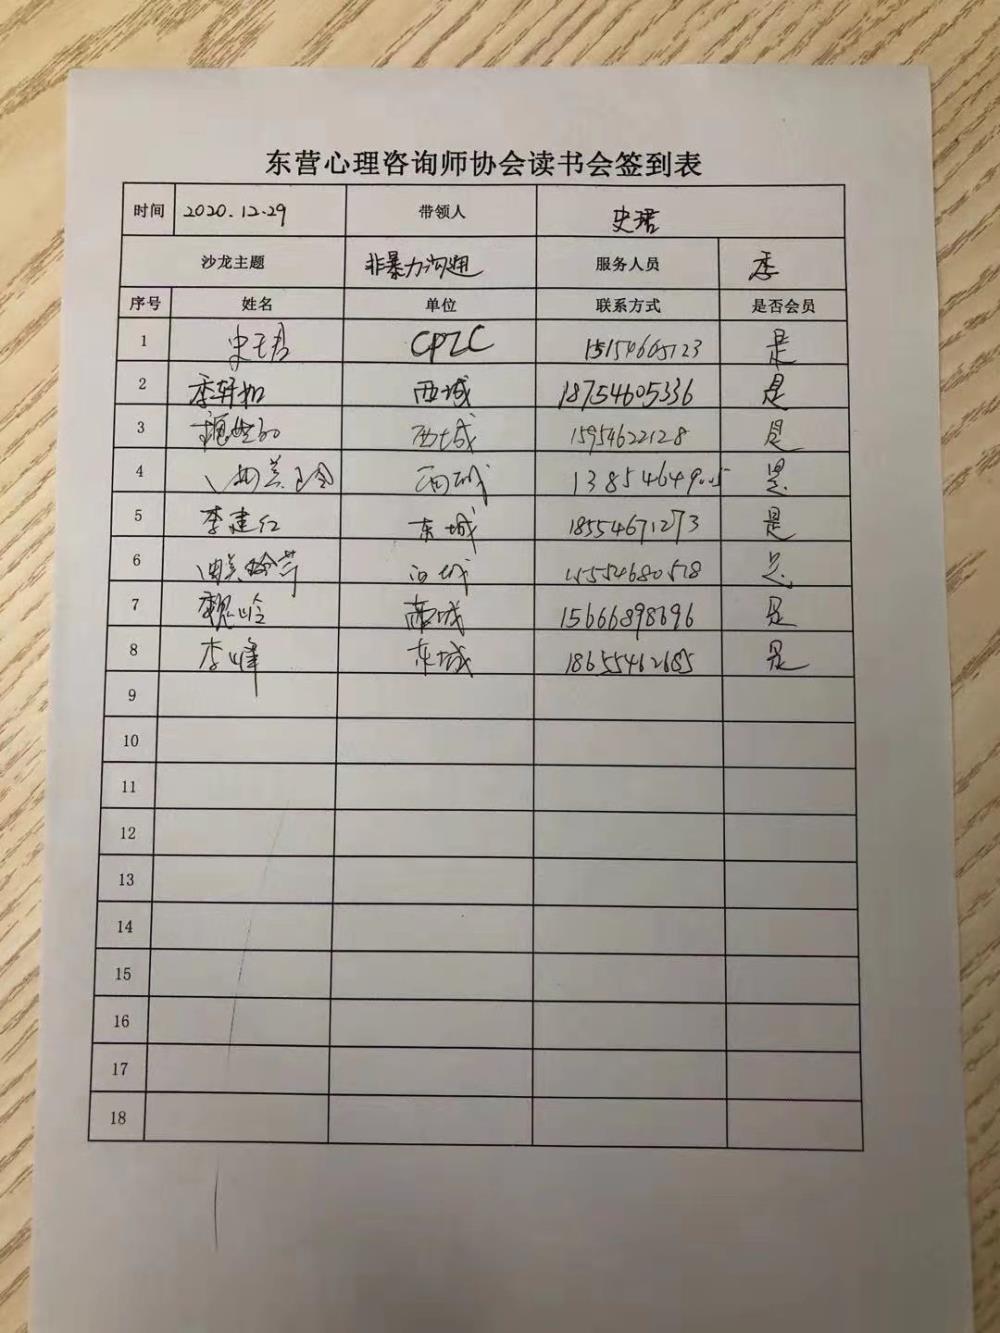 东营心理咨询师协会读书会签到表
时间 2020.12.29 带领人 史珺
沙龙主题 非暴力沟通 服务人员 季
序号 姓名 单位 联系方式 是否会员
1 史珺 CPZC 15154605123 是
2 季轩如 西城 18754605336 是
3 西城 15954622128 是
4 西城 是
5 李建仁 东城 18554671273 是
6 西城 是
7 魏岭 西城 15666898696 是
8 李峰 东城 18655462685 是
9
10
11
12
13
14
15
16
17
18